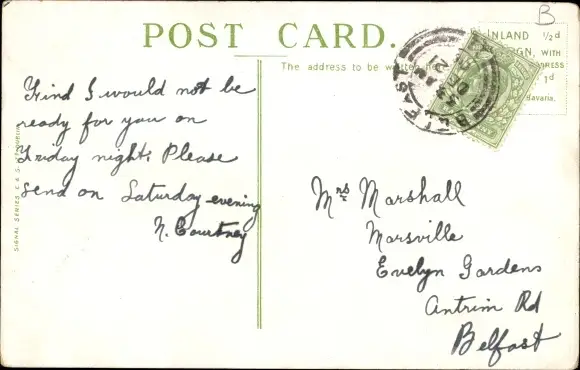 B
POST CARD.
INLAND ½d
WITH
The address to be
1d
Bavaria.
BELFAST
Find I would not be
ready for you on
Friday night. Please
send on Saturday evening
N. Courtney
Mrs Marshall
Marsville
Evelyn Gardens
Antrim Rd
Belfast
SIGNAL SERIES